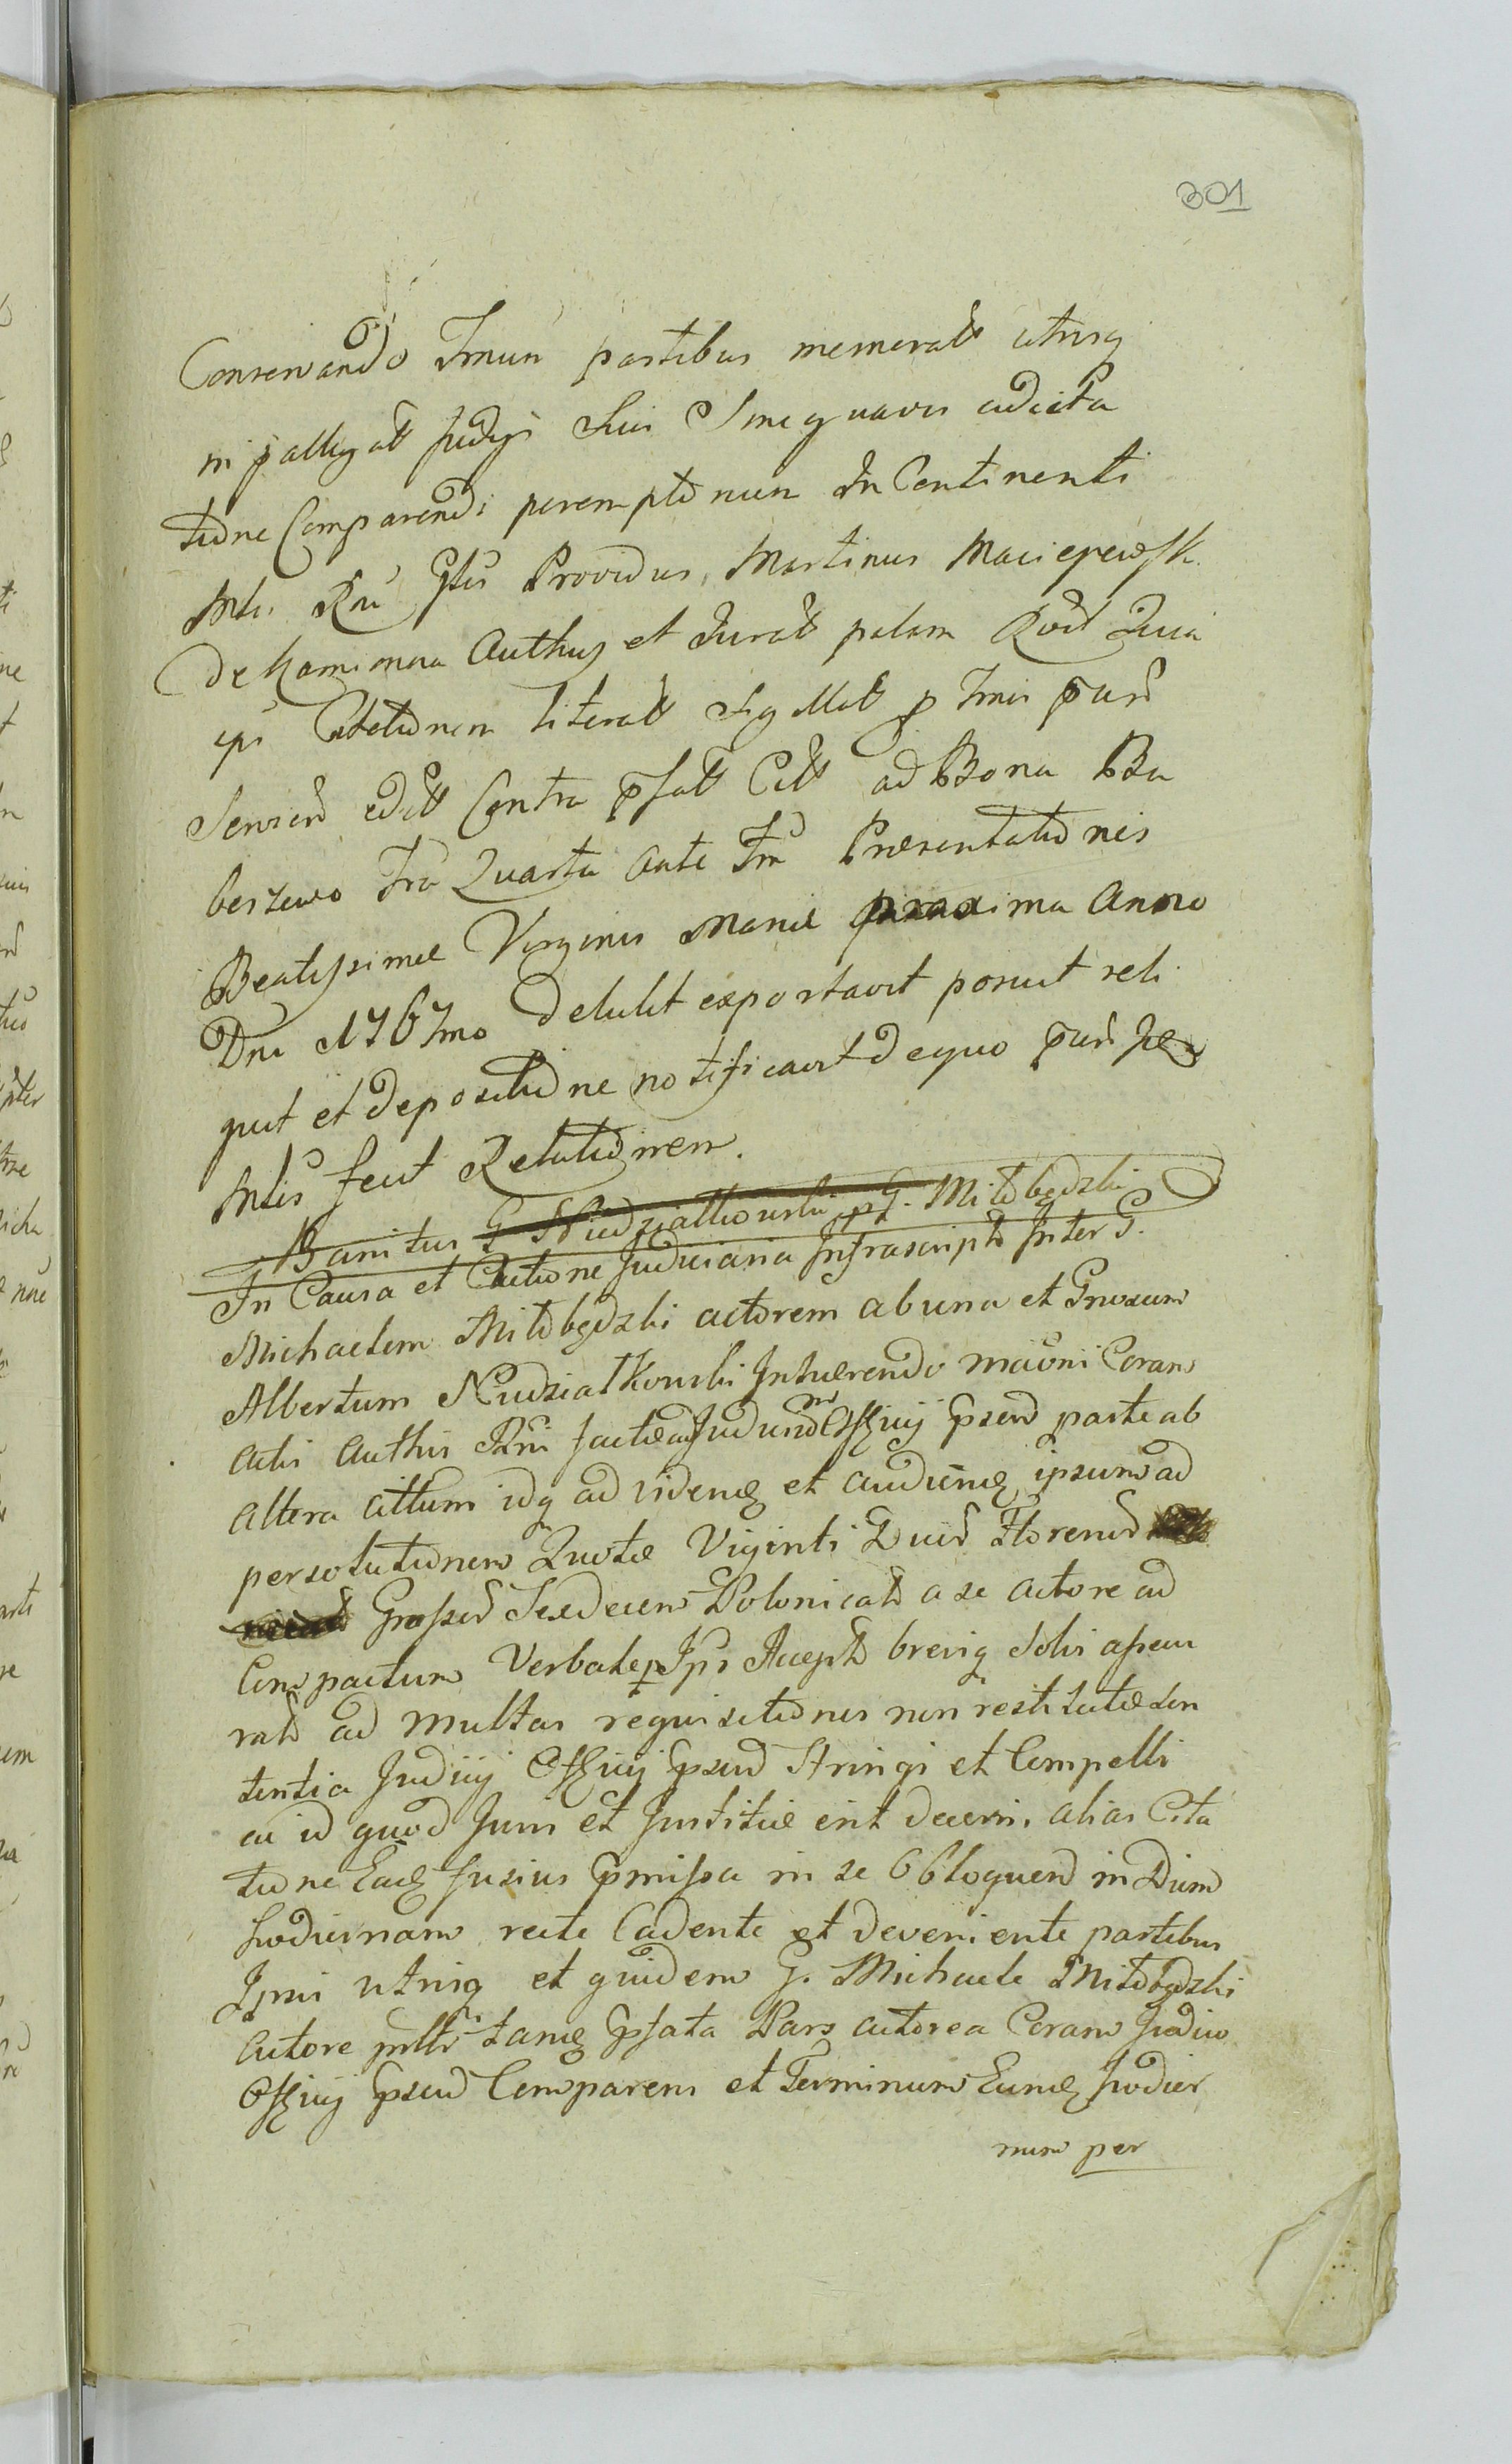 301
Conservando Tmum partibus memoratt utrisq
in pallegatt Judiji Sui Sine quavis adcita
tione Comparendi peremptorium In Continenti
Mtis Rni Glis Providus Martinus Maciejewsk
de Kamionna Authus et Jurat palam Recd Quia
ipse Citationem literatt Sigillatt p Tmis pntis
Serviend edit Contra pfatt Citt ad Bona Ba
berzewo Fria Quarta Ante Fm Præsentationis
Beatissimæ Virginis Mariæ proxima Anno
Dni 1767mo detulit exportavit posuit reli
quit et depositione notificavit de quo pnt
Mtis fecit Relationem.
Banitus G Niedziałkowski p G. Miłobędzki
In Causa et Actione Judiciaria Infrascripta Inter G.
Michaelem Miłobędzki actorem ab una et Gnosum
Albertum Niedziałkowski Inhærendo maoni Coram
actis Authis Rni factæ ad Judum Officij psens parte ab
altera cittum idq ad videndũ et audiendũ ipsum ad
persolutionem Quotæ Viginti Duor Florenor
Grossor Sexdecem Polonicals a se actore ad
Compactum Verbale p Ipsi Accepts breviq Solvi assecu
rats ad multas requisitiones non restitutæ Sen
tentia Judicij Officij psens Stringi et Compelli
ac id quod Juris et Justitiæ erit decerni, alias Cita
tione Eadẽ fusius pmissa in se Obloquen in Diem
hodiernam recte Cadente et deveniente partibus
Ipsis utrisq et quidem G. Michaele Miłobędzki
Actore tanq pfata Pars actorea Coram Judicio
Officij psens Comparens et Terminum Eundẽ hodier
num per